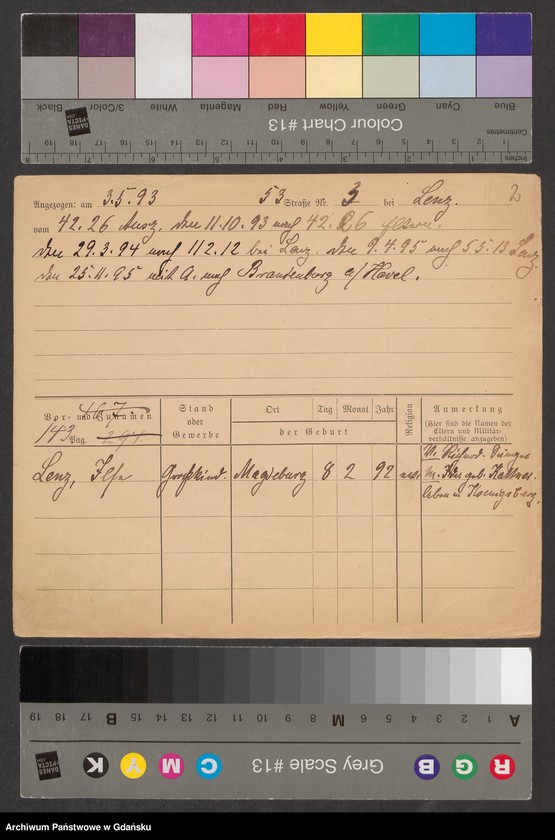 Black 3/Color White Magenta Red Yellow Green Cyan Blue
Colour Chart #13
DANES PICTA .COM
Centimetres
Inches
2
Angezogen: am 3.5.93 53 Straße Nr. 3 bei Lenz.
vom 42.26 Ausz. den 11.10.93 nach 42.26
den 29.3.94 nach 112.12 bei Lenz. den 9.4.95 nach 55.13 Lenz.
den 25.11.95 mit A. nach Brandenburg a/Havel.
Vor- und Zunamen
143 Pag.
Stand oder Gewerbe
Ort Tag Monat Jahr
der Geburt
Religion
Anmerkung
(Hier sind die Namen der Eltern und Militärverhältnisse anzugeben)
Lenz, Ilse Großkind. Magdeburg 8 2 92
V. Richard
M. geb.
leben in Koenigsberg.
A 1 2 3 4 5 6 M 8 9 10 11 12 13 14 15 B 17 18 19
R G B Grey Scale #13 C M Y K
DANES PICTA .COM
Archiwum Państwowe w Gdańsku